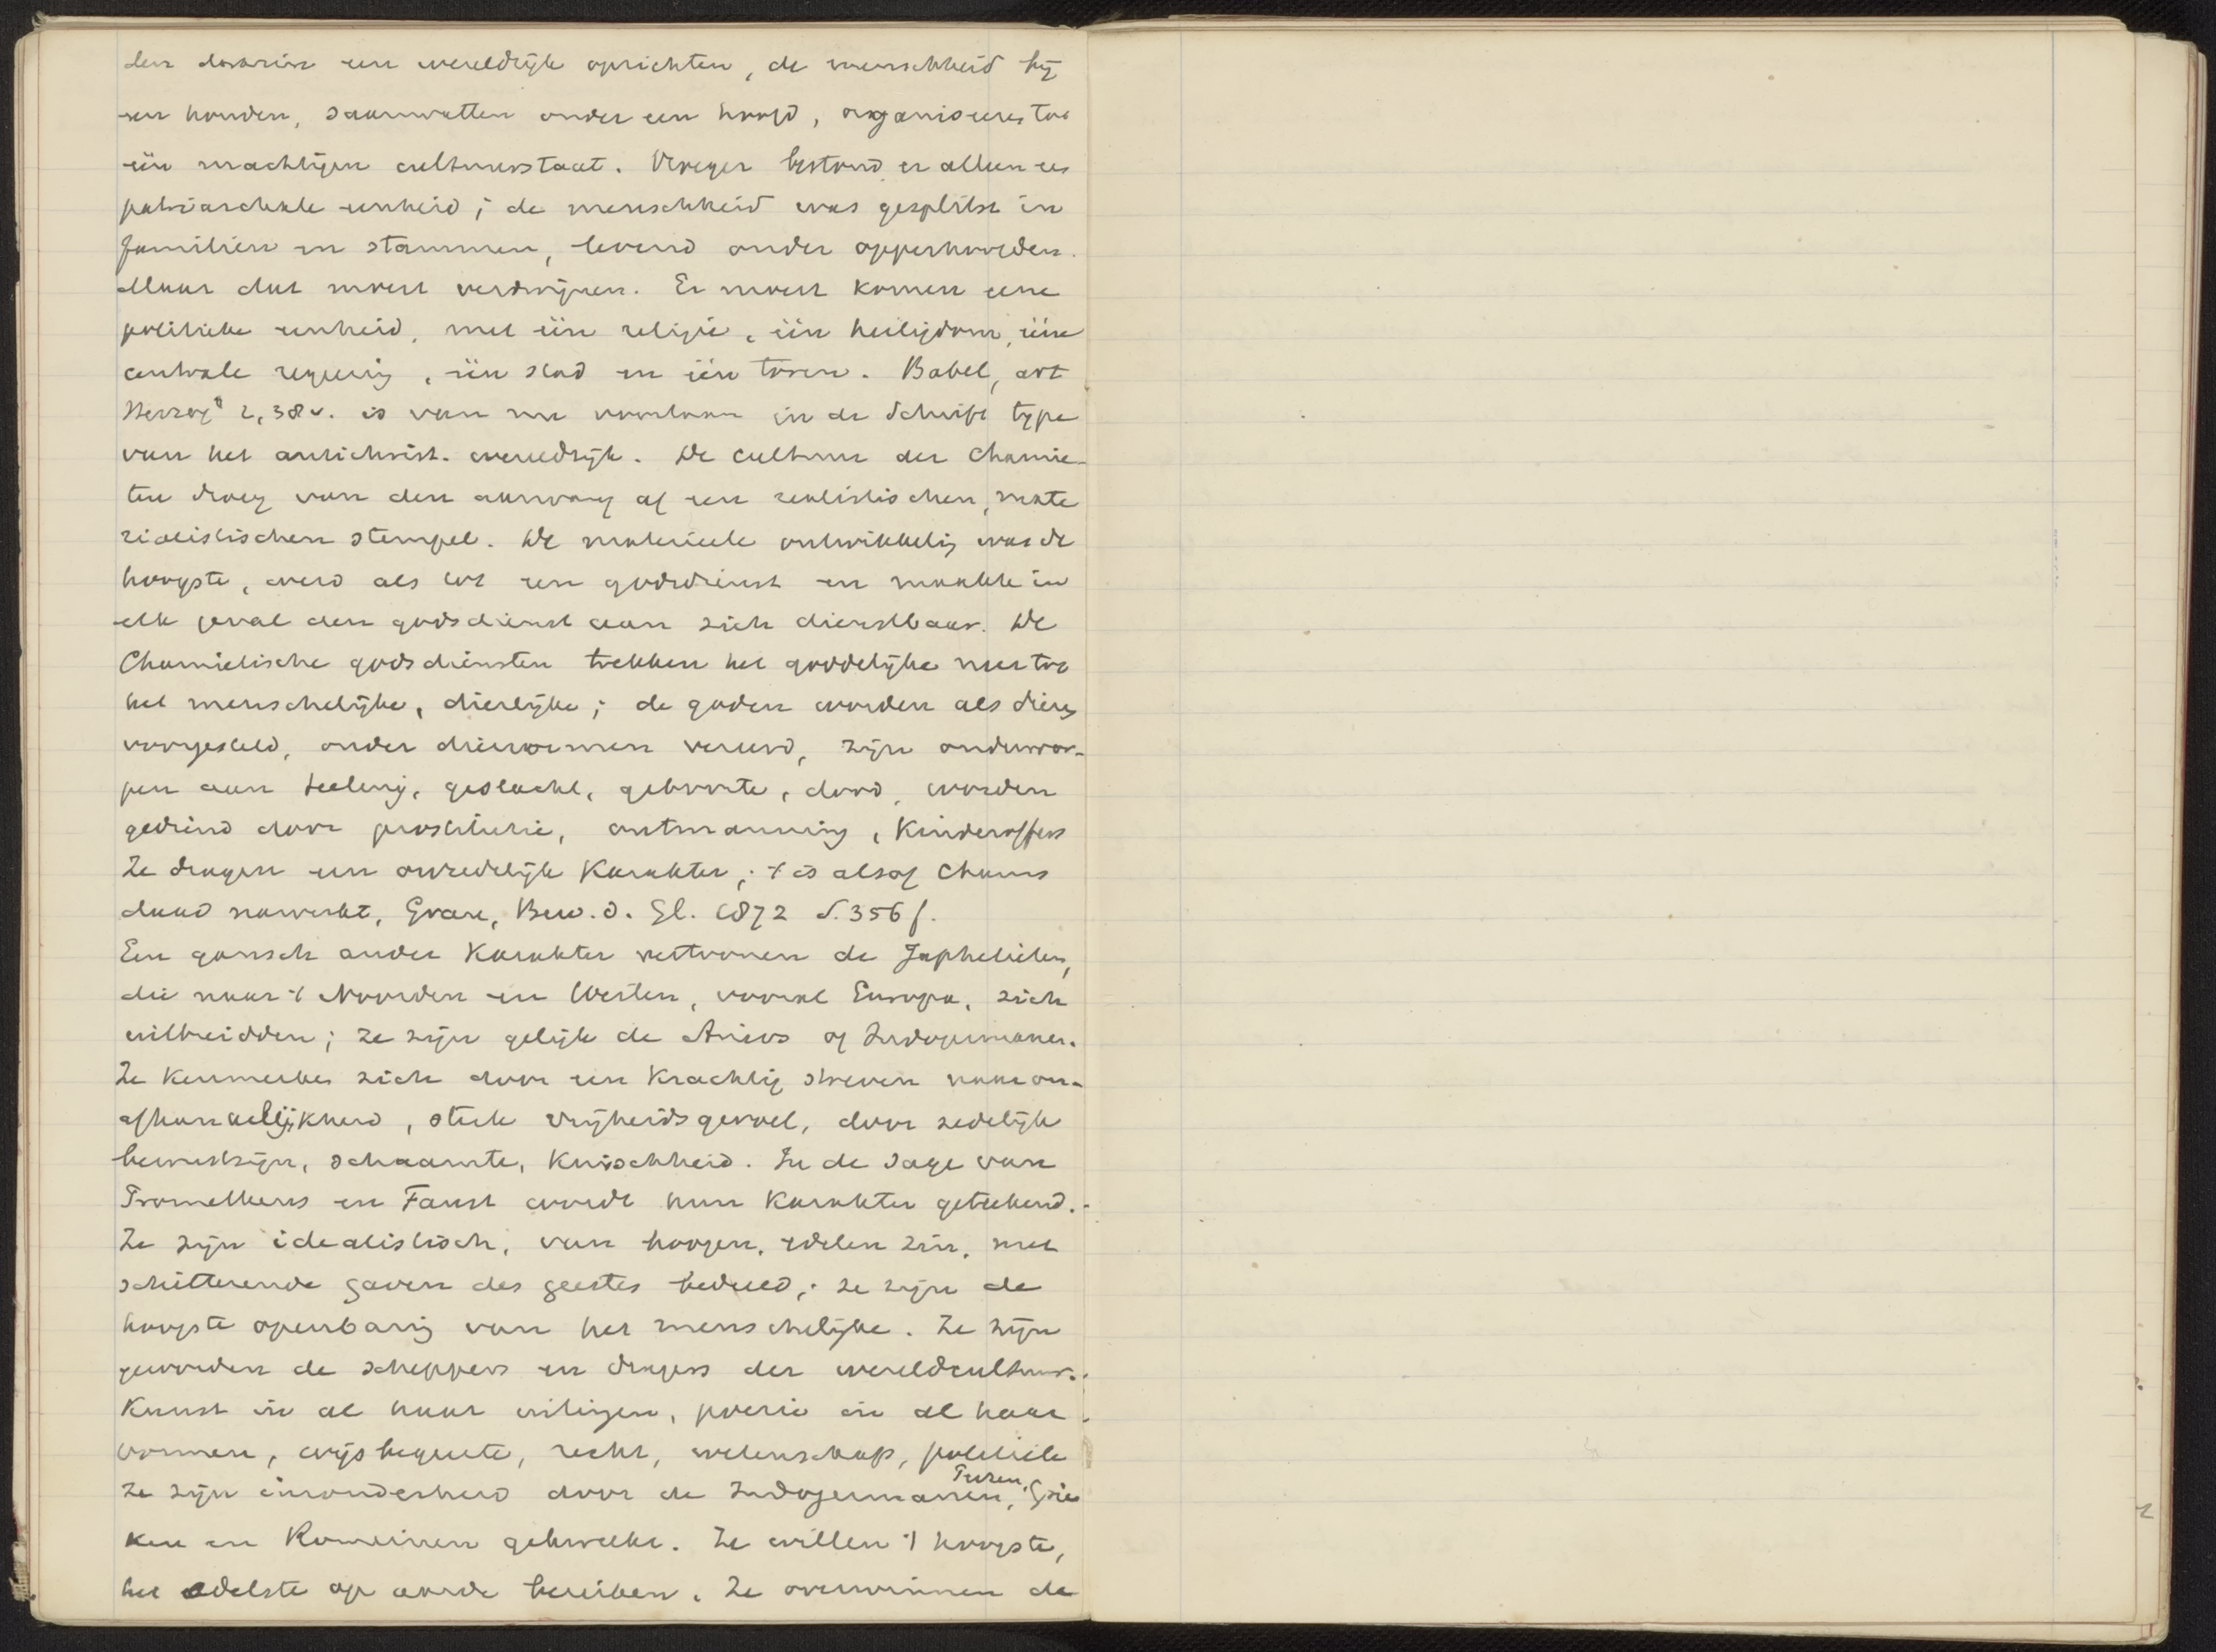 den daarin een wereldrijk oprichten, de menschheid bij
een houden, saamvatten onder een hoofd, organiseeren tot
één machtigen cultuurstaat. Vroeger bestond er alleen een
patriarchale eenheid; de menschheid was gesplitst in
familiën en stammen, levend onder opperhoofden.
Maar dat moest verdwijnen. Er moest komen eene
politieke eenheid, met één religie, één heiligdom, ééne
centrale regeering, één stad en één toren. Babel, art
Herzog² 2,38v. is van nu voortaan in de Schrift type
van het antichrist. wereldrijk. De cultuur der Chamie-
ten droeg van den aanvang af een realistischen, mate
rialistischen stempel. De materieele ontwikkeling was de
hoogste, werd als tot een godsdienst en maakte in
elk geval den godsdienst aan zich dienstbaar. De
Chamietische godsdiensten trekken het goddelijke neer tot
het menschelijke, dierlijke; de goden worden als dieren
voorgesteld, onder diervormen vereerd, zijn onderwor-
pen aan teeling, geslacht, geboorte, dood, worden
gediend door prostitutie, ontmanning, Kinderoffers
Ze dragen een onzedelijk Karakter; 't is alsof Chams
daad nawerkt, Grau, Bew. d. Gl. 1872 S. 356 f.
Een gansch ander Karakter vertoonen de Japhetieten,
die naar 't Noorden en Westen, vooral Europa, zich
uitbreidden; ze zijn gelijk de Ariers of Indogermanen.
Ze Kenmerken zich door een Krachtig streven naar on-
afhankelijkheid, sterk vrijheidsgevoel, door zedelijk
bewustzijn, schaamte, Kuischheid. In de sage van
Prometheus en Faust wordt hun Karakter geteekend.
Ze zijn idealistisch, van hoogen, edelen zin, met
schitterende gaven des geestes bedeeld; ze zijn de
hoogste openbaring van het menschelijke. Ze zijn
geworden de scheppers en dragers der wereldcultuur.
Kunst in al haar uitingen, poezie in al haar
vormen, wijsbegeerte, recht, wetenschap, politiek
ze zijn inzonderheid door de Indogermanen, Perzen, Grie
ken en Romeinen gekweekt. Ze willen 't hoogste,
het edelste op aarde bereiken. Ze overwinnen de